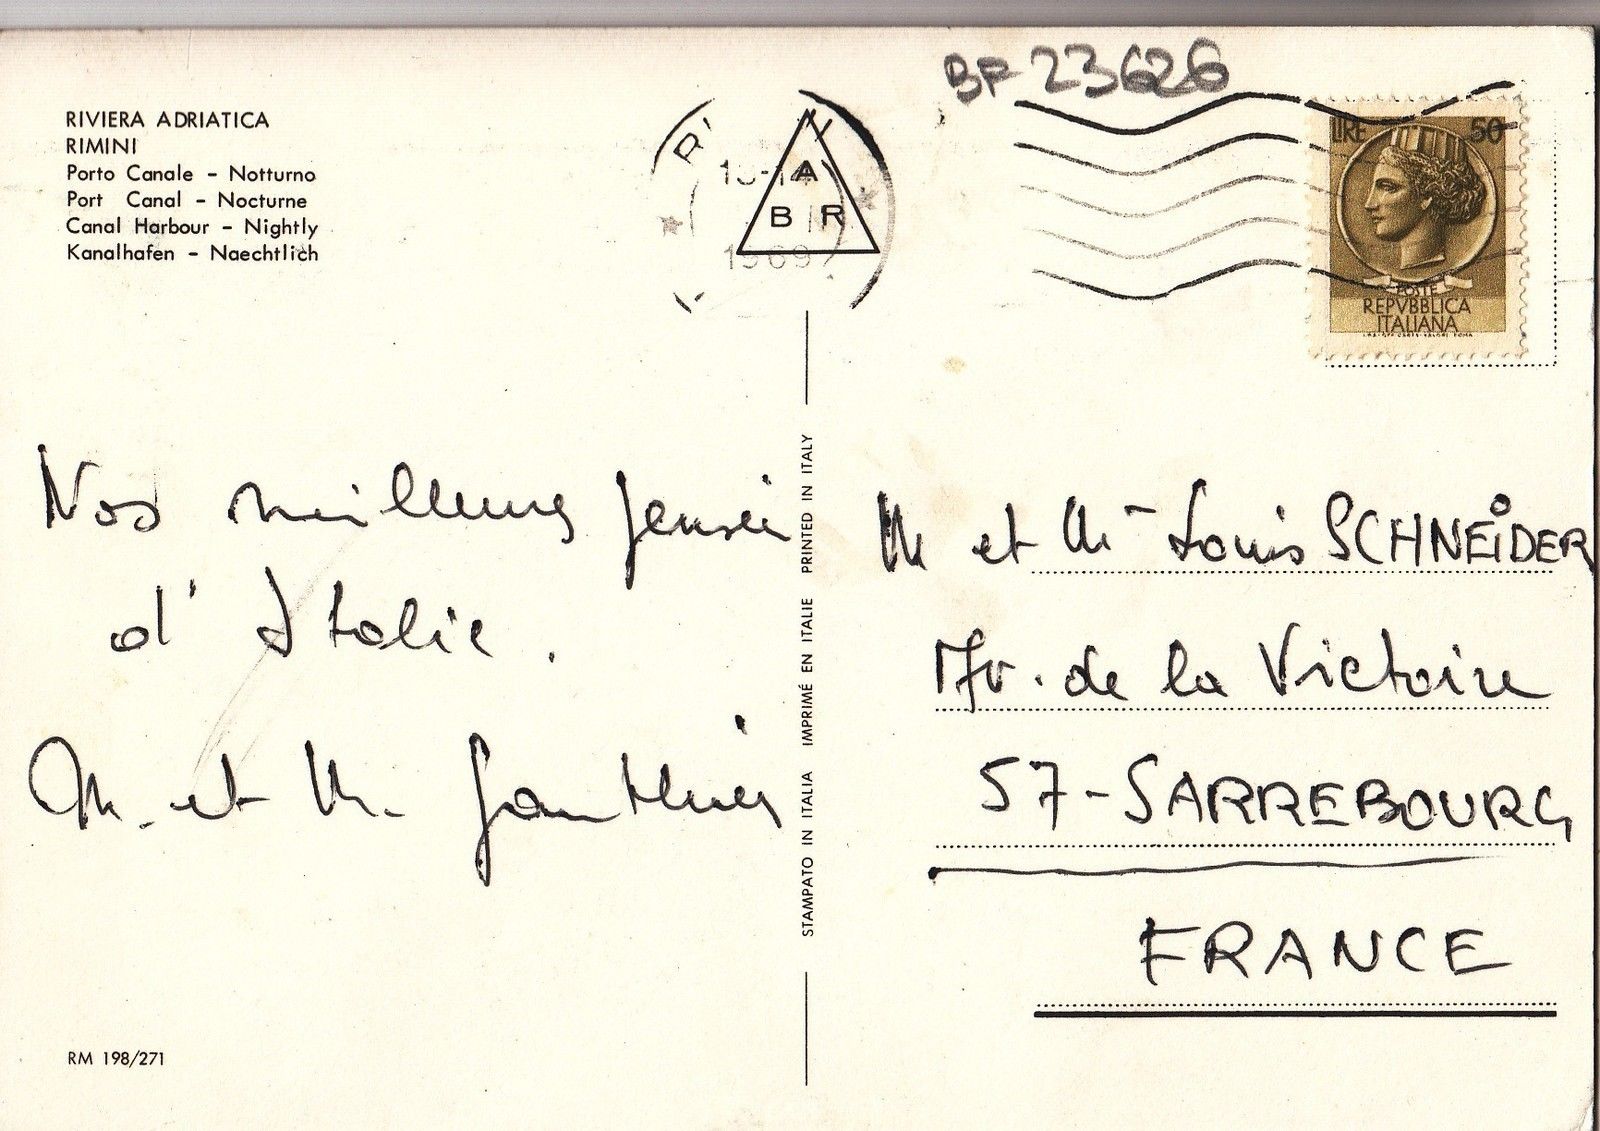 BF 23626
RIVIERA ADRIATICA
RIMINI
Porto Canale - Notturno
Port Canal - Nocturne
Canal Harbour - Nightly
Kanalhafen - Naechtlich
A
B R
1969
LIRE 50
POSTE
REPVBBLICA
ITALIANA
Nos meilleures pensées
d'Italie.
M. et M. Gauthier
STAMPATO IN ITALIA IMPRIMÉ EN ITALIE PRINTED IN ITALY
M et Mᵐ Louis SCHNEIDER
Av. de la Victoire
57-SARREBOURG
FRANCE
RM 198/271